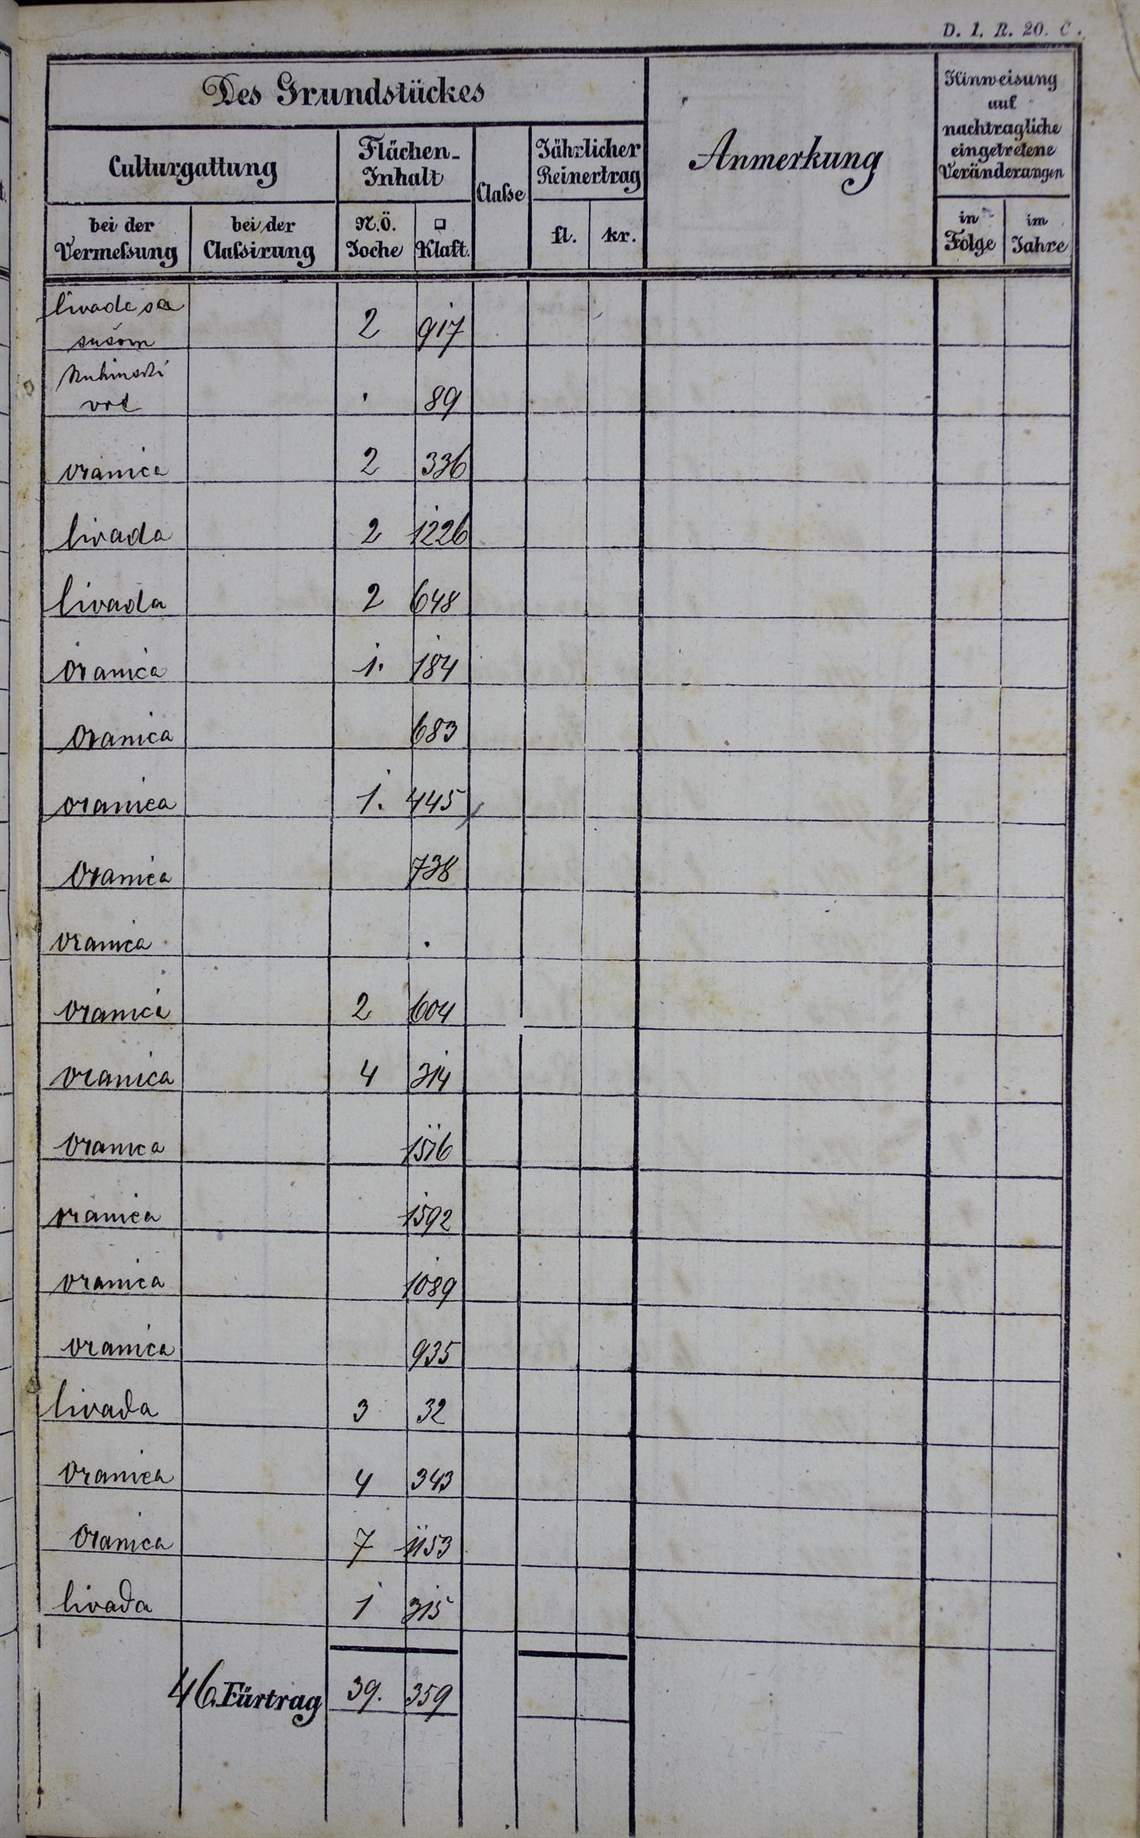 D. 1. R. 20. C.
Des Grundstückes
Anmerkung
Hinweisung
auf
nachtragliche
eingetretene
Veränderungen
Culturgattung
Flächen-
Inhalt
Claße
Jährlicher
Reinertrag
bei der
Vermeßung
bei der
Claßirung
N.Ö.
Joche
□
Klaft.
fl.
kr.
in
Folge
im
Jahre
livade sa
sušom 2 917
Kuhinski
vrt . 89
oranica 2 336
livada 2 1226
livada 2 648
oranica 1. 184
oranica 683
oranica 1. 445
oranica 738
oranica .
oranica 2 604
oranica 4 314
oranica 1516
oranica 1592
oranica 1089
oranica 935
livada 3 32
oranica 4 343
oranica 7 1153
livada 1 315
46. Fürtrag 39. 359